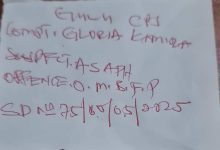 COMPT. GLORIA KAMIRA
SUSPECT. ASAPH
OFFENCE. O. M. B. F. P
SD No 75/08/05/2025